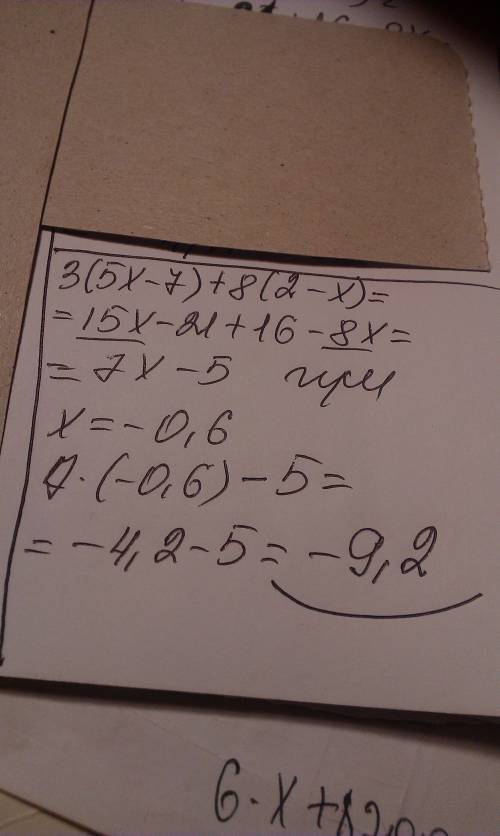 3(5x-7)+8(2-x)=
=15x-21+16-8x=
=7x-5 при
x=-0,6
7·(-0,6)-5=
=-4,2-5=-9,2
6·x+